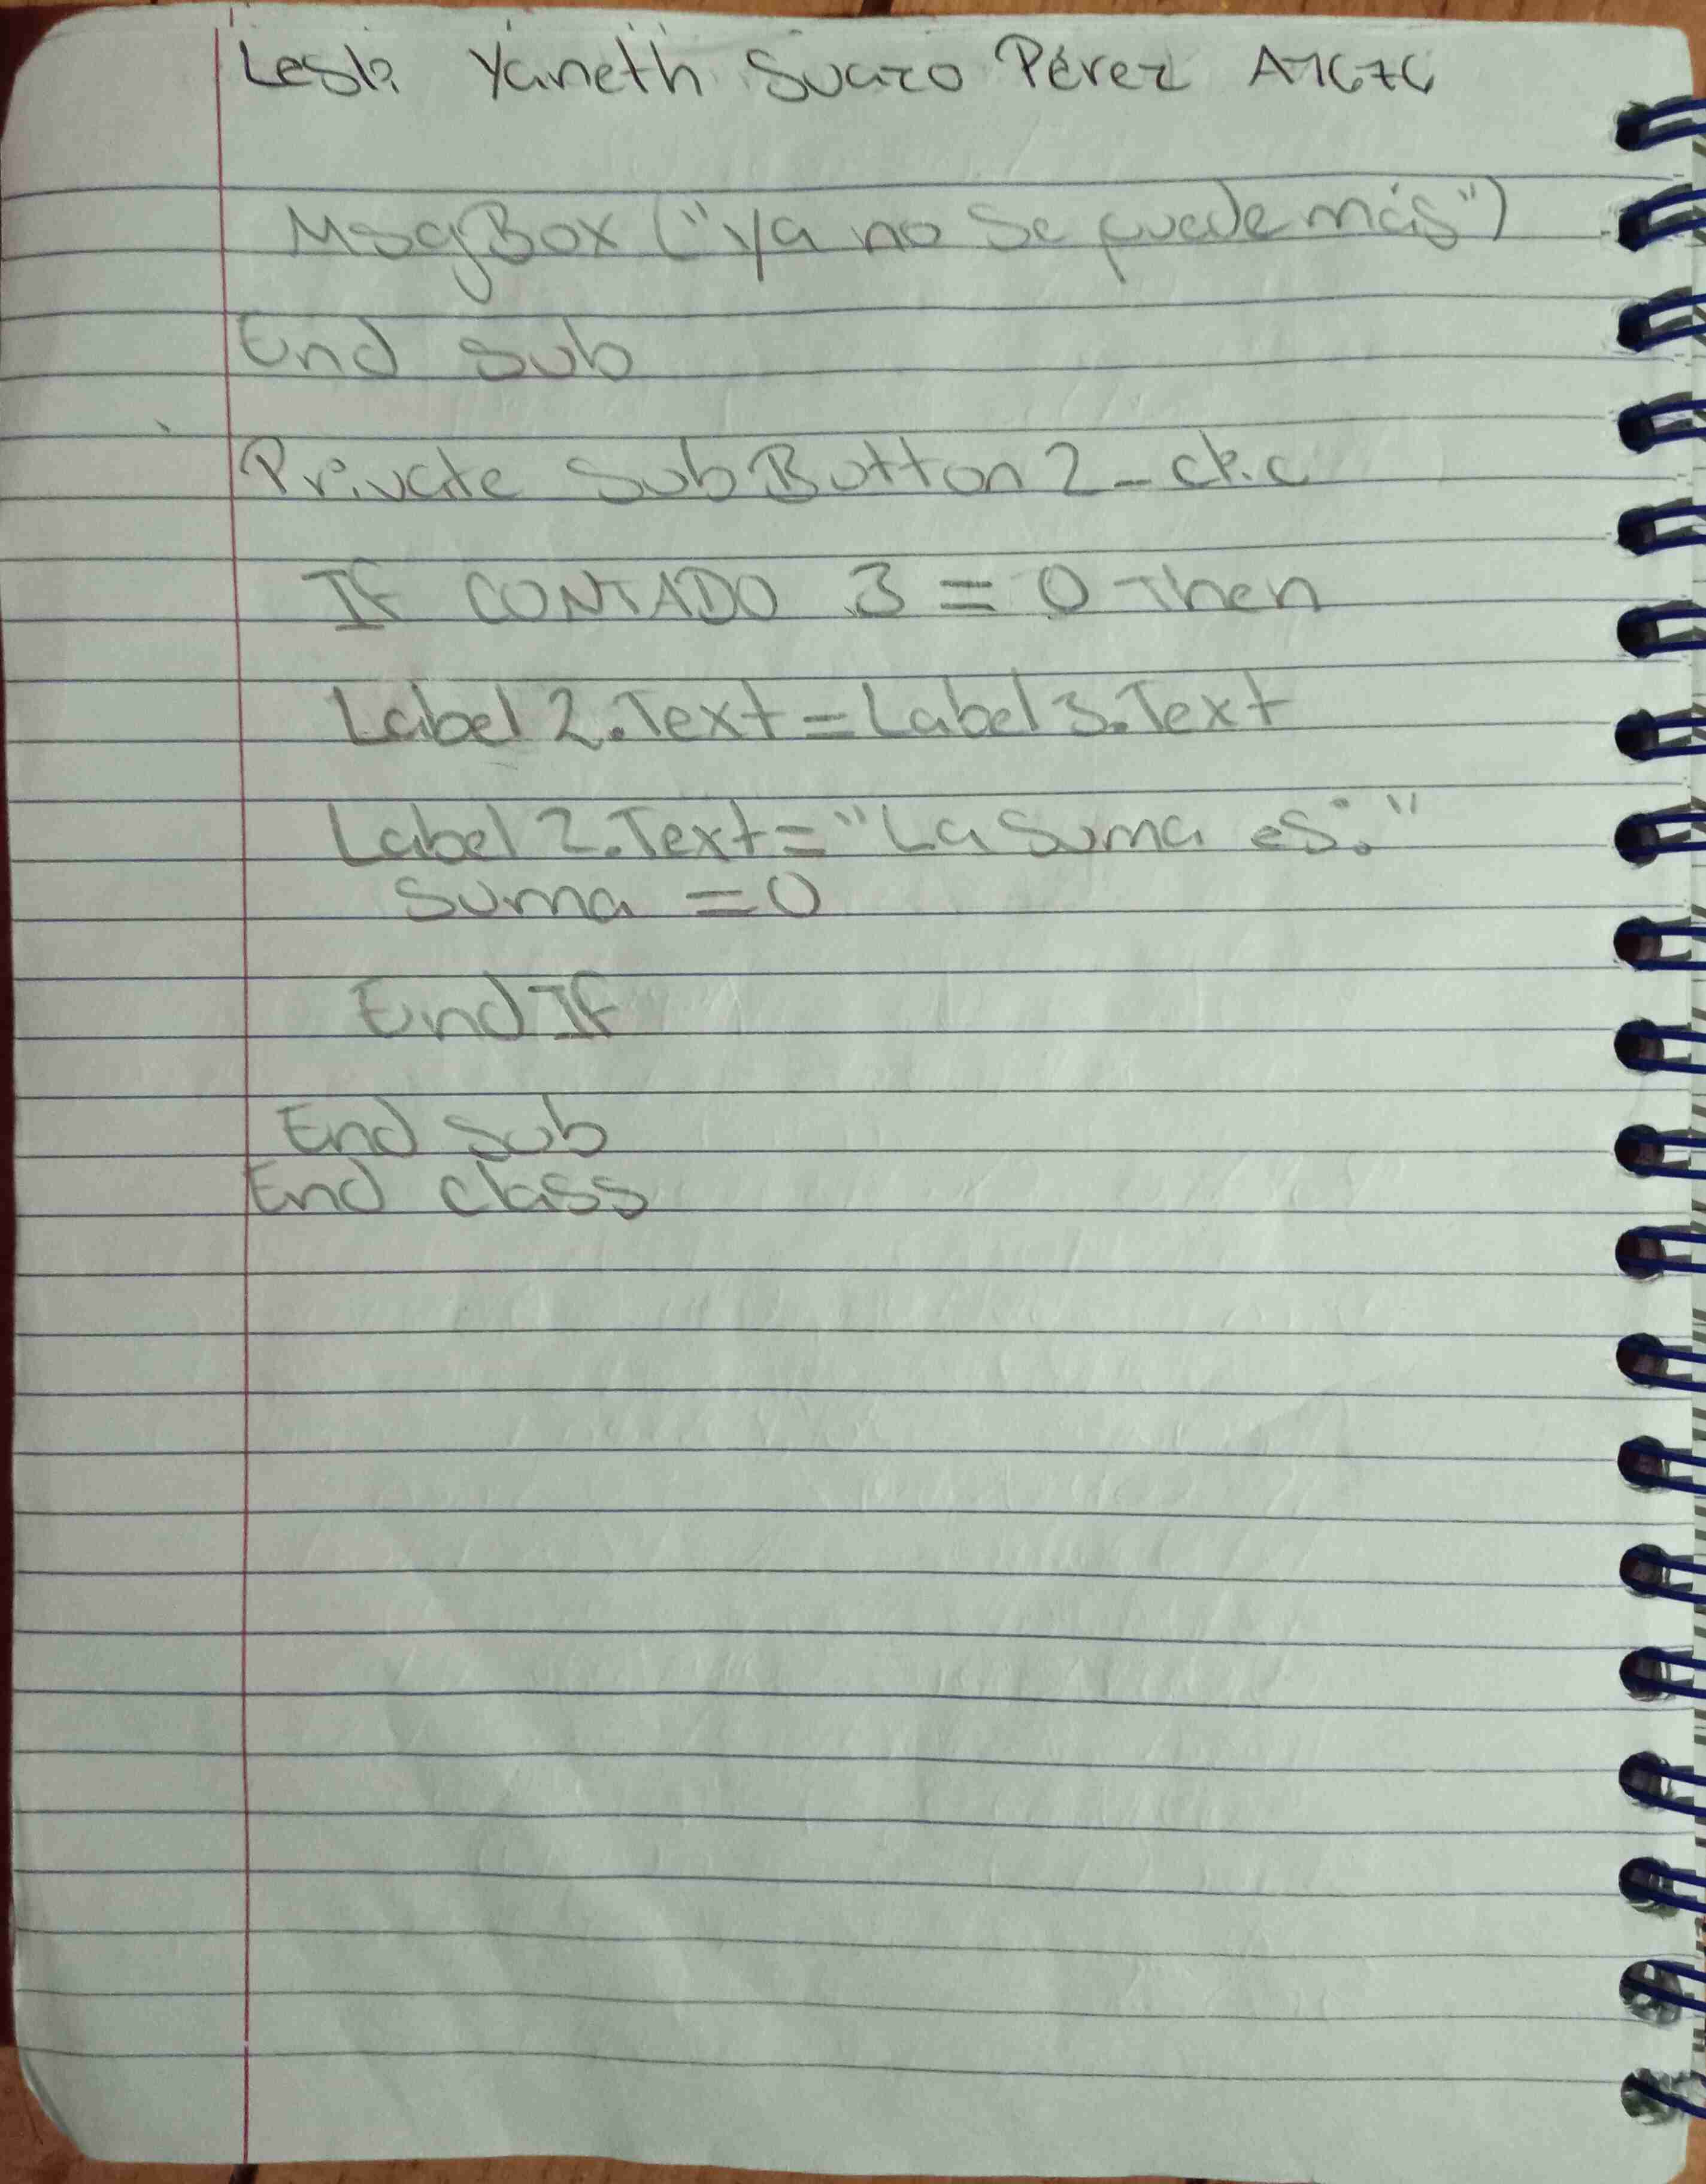 Lesli Yaneth Suazo Pérez A7676
MsgBox ("ya no se puede más")
End sub
Private Sub Button 2_clic
IF CONTADO 3 = 0 Then
Label 2.Text = Label 3.Text
Label 2.Text = "La suma es:"
suma = 0
End IF
End sub
End class